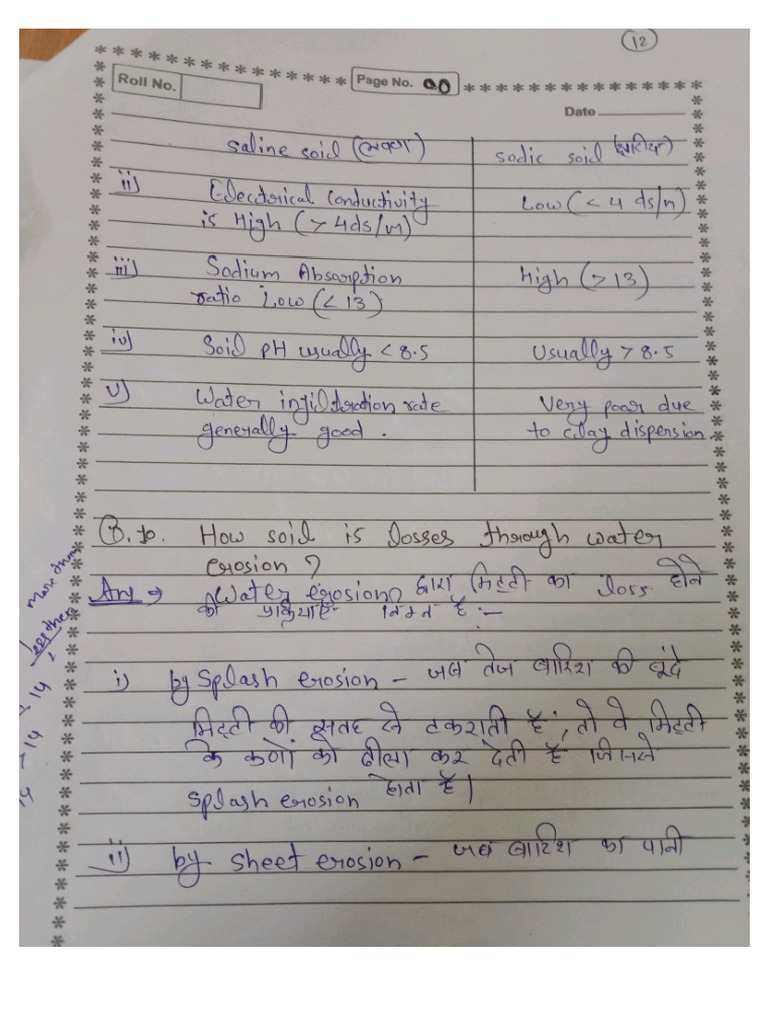 12
Roll No. Page No. 00
Date
saline soid (लवण) sodic soid (क्षारीय)
ii) Electrical Conductivity Low (< 4 ds/m)
is High (> 4ds/m)
iii) Sodium Absorption High (> 13)
ratio Low (< 13)
iv) Soid pH usually < 8.5 Usually > 8.5
v) Water infiltration rate Very poor due
generally good. to clay dispersion.
Q.10. How soid is losses through water
erosion?
Ans → Water erosion द्वारा मिट्टी का loss होने
की प्रक्रियाएं निम्न है :-
i) by Splash erosion - जब तेज बारिश की बूंदे
मिट्टी की सतह से टकराती हैं, तो वे मिट्टी
के कणों को ढीला कर देती है जिससे
splash erosion होता है।
ii) by sheet erosion - जब बारिश का पानी
more than
less than
14
14
14